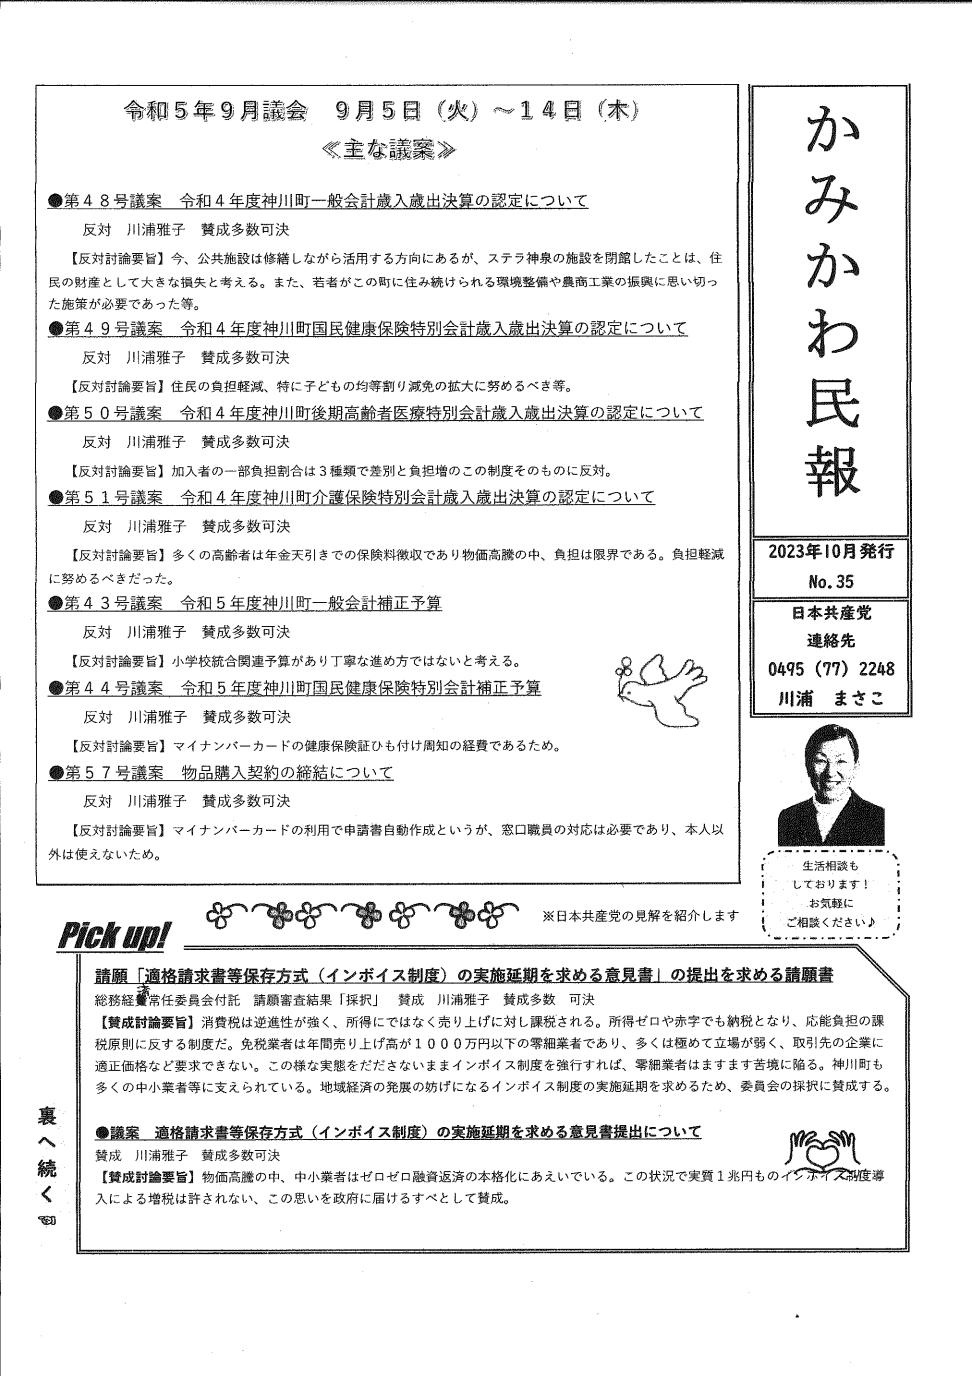 令和５年９月議会　９月５日（火）～１４日（木）
≪主な議案≫
●第４８号議案　令和４年度神川町一般会計歳入歳出決算の認定について
反対　川浦雅子　賛成多数可決
【反対討論要旨】今、公共施設は修繕しながら活用する方向にあるが、ステラ神泉の施設を閉館したことは、住
民の財産として大きな損失と考える。また、若者がこの町に住み続けられる環境整備や農商工業の振興に思い切っ
た施策が必要であった等。
●第４９号議案　令和４年度神川町国民健康保険特別会計歳入歳出決算の認定について
反対　川浦雅子　賛成多数可決
【反対討論要旨】住民の負担軽減、特に子どもの均等割り減免の拡大に努めるべき等。
●第５０号議案　令和４年度神川町後期高齢者医療特別会計歳入歳出決算の認定について
反対　川浦雅子　賛成多数可決
【反対討論要旨】加入者の一部負担割合は３種類で差別と負担増のこの制度そのものに反対。
●第５１号議案　令和４年度神川町介護保険特別会計歳入歳出決算の認定について
反対　川浦雅子　賛成多数可決
【反対討論要旨】多くの高齢者は年金天引きでの保険料徴収であり物価高騰の中、負担は限界である。負担軽減
に努めるべきだった。
●第４３号議案　令和５年度神川町一般会計補正予算
反対　川浦雅子　賛成多数可決
【反対討論要旨】小学校統合関連予算があり丁寧な進め方ではないと考える。
●第４４号議案　令和５年度神川町国民健康保険特別会計補正予算
反対　川浦雅子　賛成多数可決
【反対討論要旨】マイナンバーカードの健康保険証ひも付け周知の経費であるため。
●第５７号議案　物品購入契約の締結について
反対　川浦雅子　賛成多数可決
【反対討論要旨】マイナンバーカードの利用で申請書自動作成というが、窓口職員の対応は必要であり、本人以
外は使えないため。
かみかわ民報
2023年10月発行
No.35
日本共産党
連絡先
0495（77）2248
川浦　まさこ
生活相談も
しております！
お気軽に
ご相談ください♪
※日本共産党の見解を紹介します
Pick up!
請願「適格請求書等保存方式（インボイス制度）の実施延期を求める意見書」の提出を求める請願書
総務経済常任委員会付託　請願審査結果「採択」　賛成　川浦雅子　賛成多数　可決
【賛成討論要旨】消費税は逆進性が強く、所得にではなく売り上げに対し課税される。所得ゼロや赤字でも納税となり、応能負担の課
税原則に反する制度だ。免税業者は年間売り上げ高が１０００万円以下の零細業者であり、多くは極めて立場が弱く、取引先の企業に
適正価格など要求できない。この様な実態をだださないままインボイス制度を強行すれば、零細業者はますます苦境に陥る。神川町も
多くの中小業者等に支えられている。地域経済の発展の妨げになるインボイス制度の実施延期を求めるため、委員会の採択に賛成する。
●議案　適格請求書等保存方式（インボイス制度）の実施延期を求める意見書提出について
賛成　川浦雅子　賛成多数可決
【賛成討論要旨】物価高騰の中、中小業者はゼロゼロ融資返済の本格化にあえいでいる。この状況で実質１兆円ものインボイス制度導
入による増税は許されない、この思いを政府に届けるすべとして賛成。
裏へ続く☜